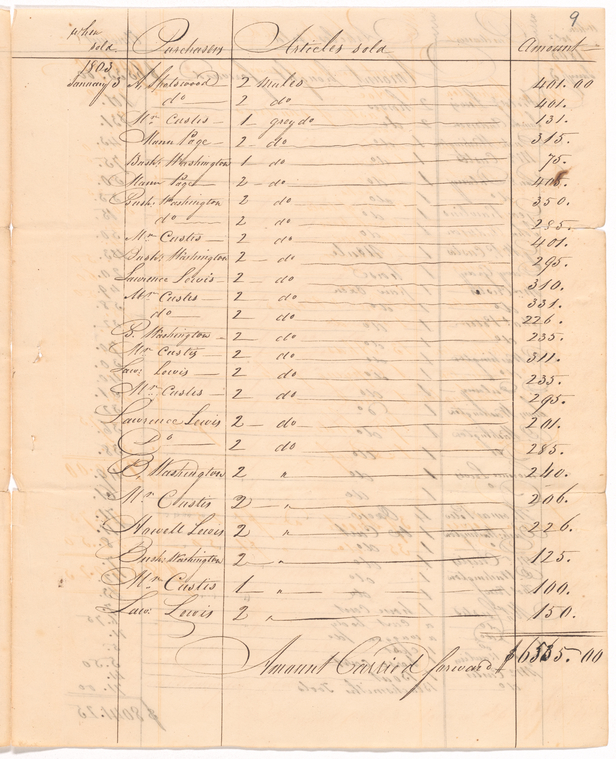 9
when sold Purchasers Articles sold Amount
1803
January 5 A. Spotswood 2 mules 401.00
do 2 do 401.
Mr. Custis 1 grey do 131.
Mann Page 2 do 315.
Bush. Washington 1 do 75.
Mann Page 2 do 405.
Bush. Washington 2 do 350.
do 2 do 285.
Mr. Custis 2 do 401.
Bush. Washington 2 do 295.
Lawrence Lewis 2 do 310.
Mr Custis 2 do 331.
do 2 do 226.
B. Washington 2 do 235.
Mr Custis 2 do 311.
Law: Lewis 2 do 235.
Mr. Custis 2 do 295.
Lawrence Lewis 2 do 201.
Do 2 do 285.
B. Washington 2 " 240.
Mr Custis 2 " 206.
Howell Lewis 2 " 226.
Bush: Washington 2 " 125.
Mr Custis 1 " 100.
Law: Lewis 2 " 150.
Amount Carried forward $6535.00